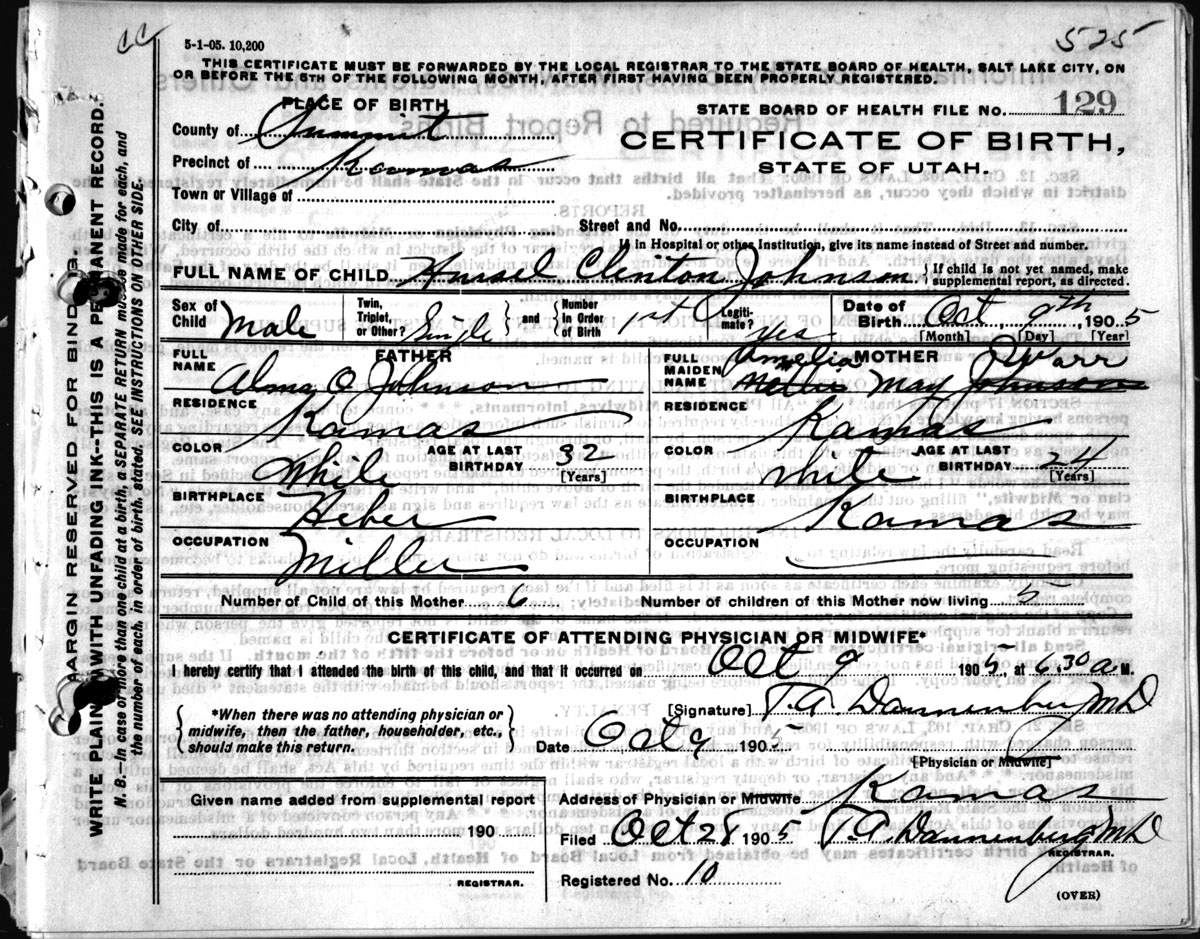 5-1-05. 10,200
525
THIS CERTIFICATE MUST BE FORWARDED BY THE LOCAL REGISTRAR TO THE STATE BOARD OF HEALTH, SALT LAKE CITY, ON
OR BEFORE THE 5TH OF THE FOLLOWING MONTH, AFTER FIRST HAVING BEEN PROPERLY REGISTERED.
PLACE OF BIRTH
STATE BOARD OF HEALTH FILE No. 129
County of Summit
CERTIFICATE OF BIRTH,
Precinct of Kamas
STATE OF UTAH.
Town or Village of
City of Street and No.
If in Hospital or other Institution, give its name instead of Street and number.
FULL NAME OF CHILD Clinton Johnson { If child is not yet named, make
supplemental report, as directed.
Sex of Child Male
Twin, Triplet, or Other? Single } and { Number in Order of Birth 1st
Legiti-mate? yes
Date of Birth Oct 9th, 1905
[Month] [Day] [Year]
FULL NAME FATHER
Alma O Johnson
FULL MAIDEN NAME MOTHER
Amelia Warr
May Johnson
RESIDENCE Kamas
RESIDENCE Kamas
COLOR White AGE AT LAST BIRTHDAY 32 [Years]
COLOR White AGE AT LAST BIRTHDAY 24 [Years]
BIRTHPLACE Heber
BIRTHPLACE Kamas
OCCUPATION Miller
OCCUPATION
Number of Child of this Mother 6 Number of children of this Mother now living 5
CERTIFICATE OF ATTENDING PHYSICIAN OR MIDWIFE*
I hereby certify that I attended the birth of this child, and that it occurred on Oct 9 1905, at 6.30 a M.
[Signature] T.A. Dannenberg MD
{ *When there was no attending physician or
midwife, then the father, householder, etc.,
should make this return. }
Date Oct 9 1905
[Physician or Midwife]
Given name added from supplemental report
190
REGISTRAR.
Address of Physician or Midwife Kamas
Filed Oct 28 1905 T.A. Dannenberg MD
REGISTRAR.
Registered No. 10
(OVER)
MARGIN RESERVED FOR BINDING.
WRITE PLAINLY WITH UNFADING INK--THIS IS A PERMANENT RECORD.
N. B.--In case of more than one child at a birth, a SEPARATE RETURN must be made for each, and
the number of each, in order of birth, stated. SEE INSTRUCTIONS ON OTHER SIDE.